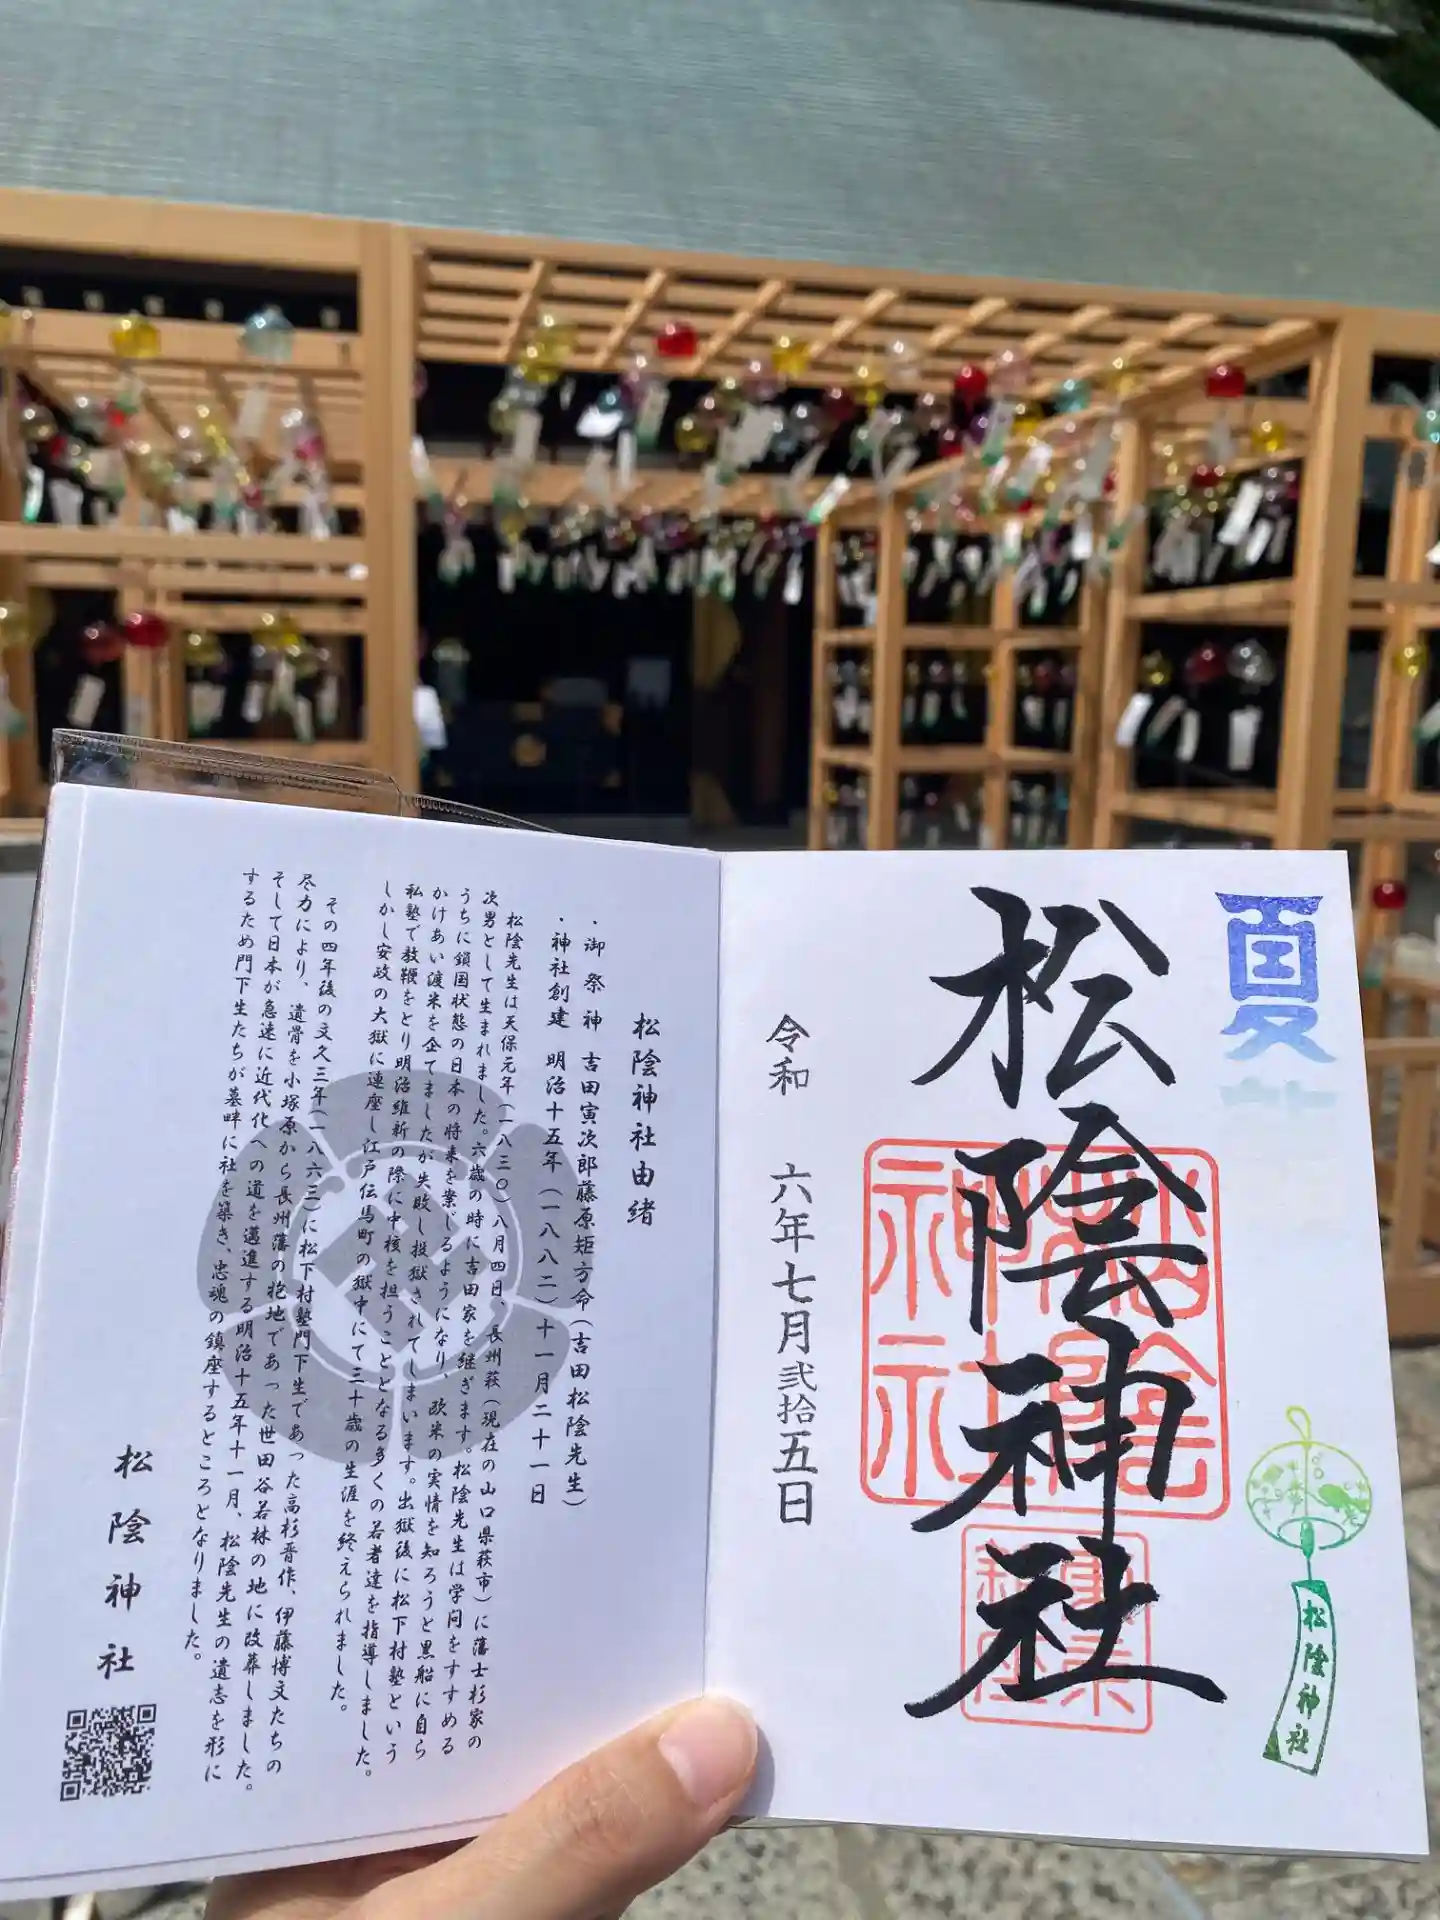 夏
松陰神社
松陰神社
令和 六年七月弐拾五日
松陰神社
松陰神社由緒
・御祭神 吉田寅次郎藤原矩方命(吉田松陰先生)
・神社創建 明治十五年(一八八二)十一月二十一日
松陰先生は天保元年(一八三〇)八月四日、長州萩(現在の山口県萩市)に藩士杉家の
次男として生まれました。六歳の時に吉田家を継ぎます。松陰先生は学問をすすめる
うちに鎖国状態の日本の将来を案じるようになり、欧米の実情を知ろうと黒船に自ら
かけあい渡米を企てましたが失敗し投獄されてしまいます。出獄後に松下村塾という
私塾で教鞭をとり明治維新の際に中核を担うこととなる多くの若者達を指導しました。
しかし安政の大獄に連座し江戸伝馬町の獄中にて三十歳の生涯を終えられました。
その四年後の文久三年(一八六三)に松下村塾門下生であった高杉晋作、伊藤博文たちの
尽力により、遺骨を小塚原から長州藩の抱地であった世田谷若林の地に改葬しました。
そして日本が急速に近代化への道を邁進する明治十五年十一月、松陰先生の遺志を形に
するため門下生たちが墓畔に社を築き、忠魂の鎮座するところとなりました。
松陰神社